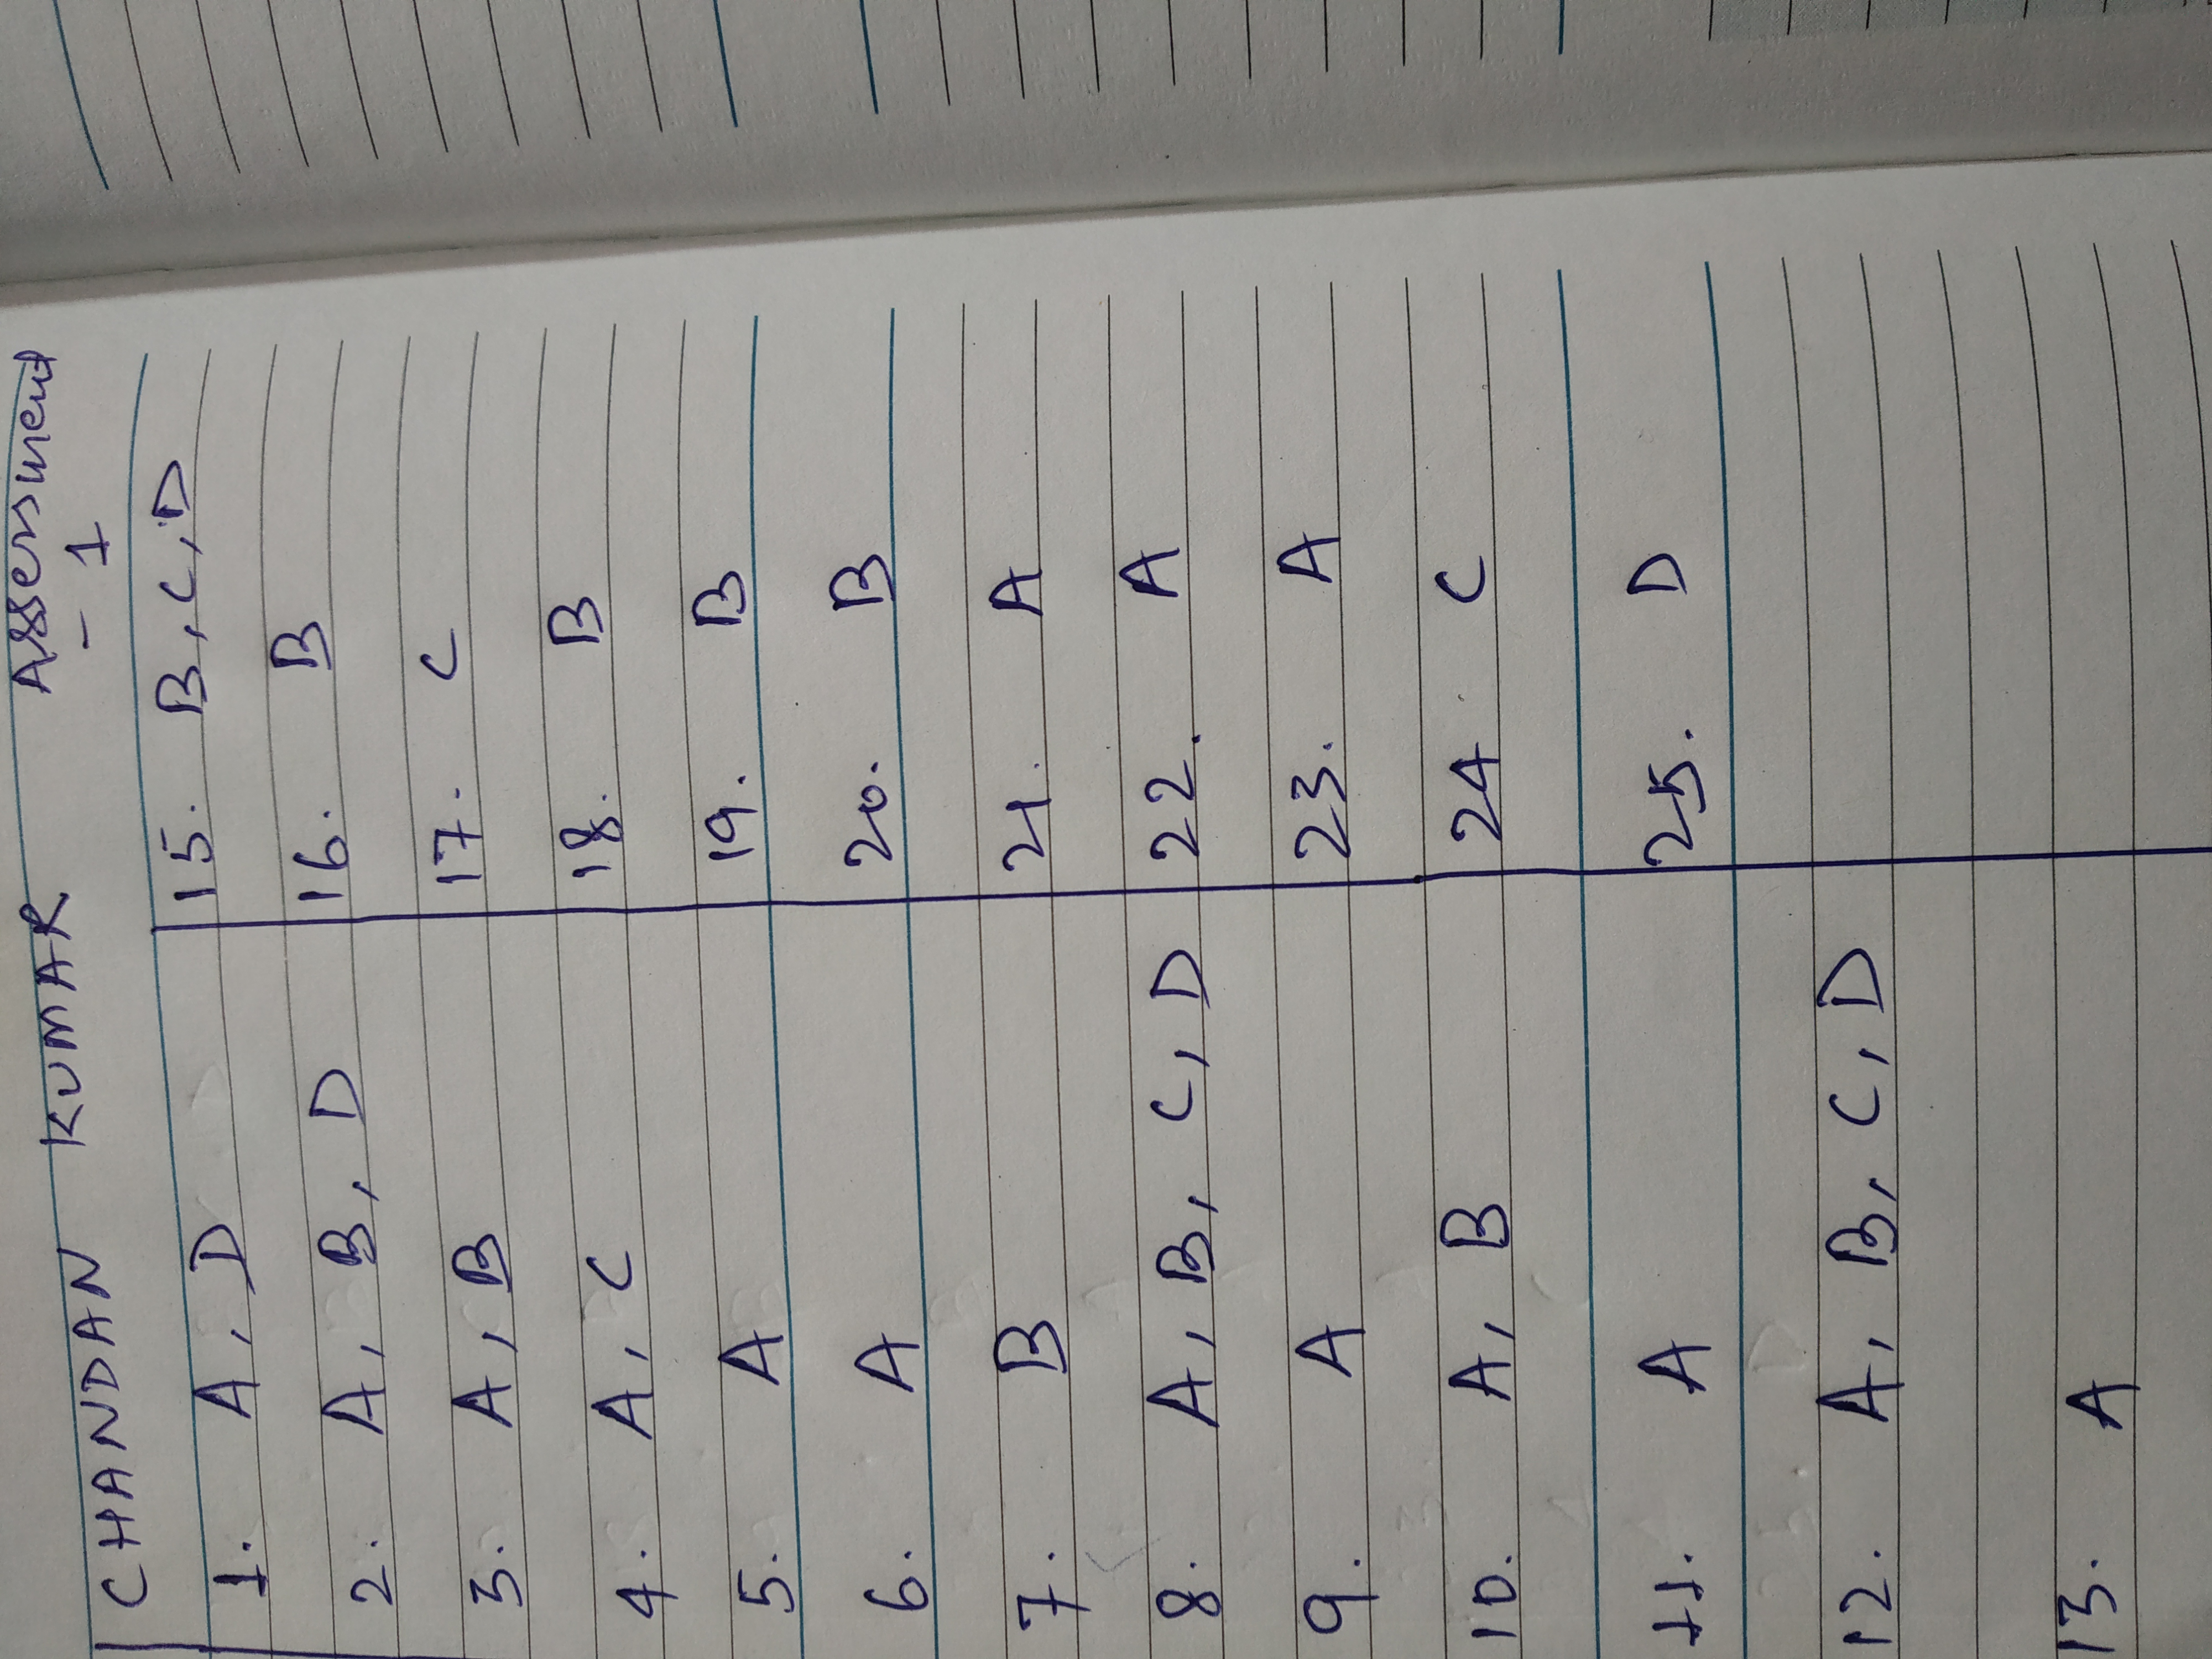 CHANDAN KUMAR Assessment
- 1
1. A, D
2. A, B, D
3. A, B
4. A, C
5. A
6. A
7. B
8. A, B, C, D
9. A
10. A, B
11. A
12. A, B, C, D
13. A
15. B, C, D
16. B
17. C
18. B
19. B
20. B
21. A
22. A
23. A
24 C
25. D